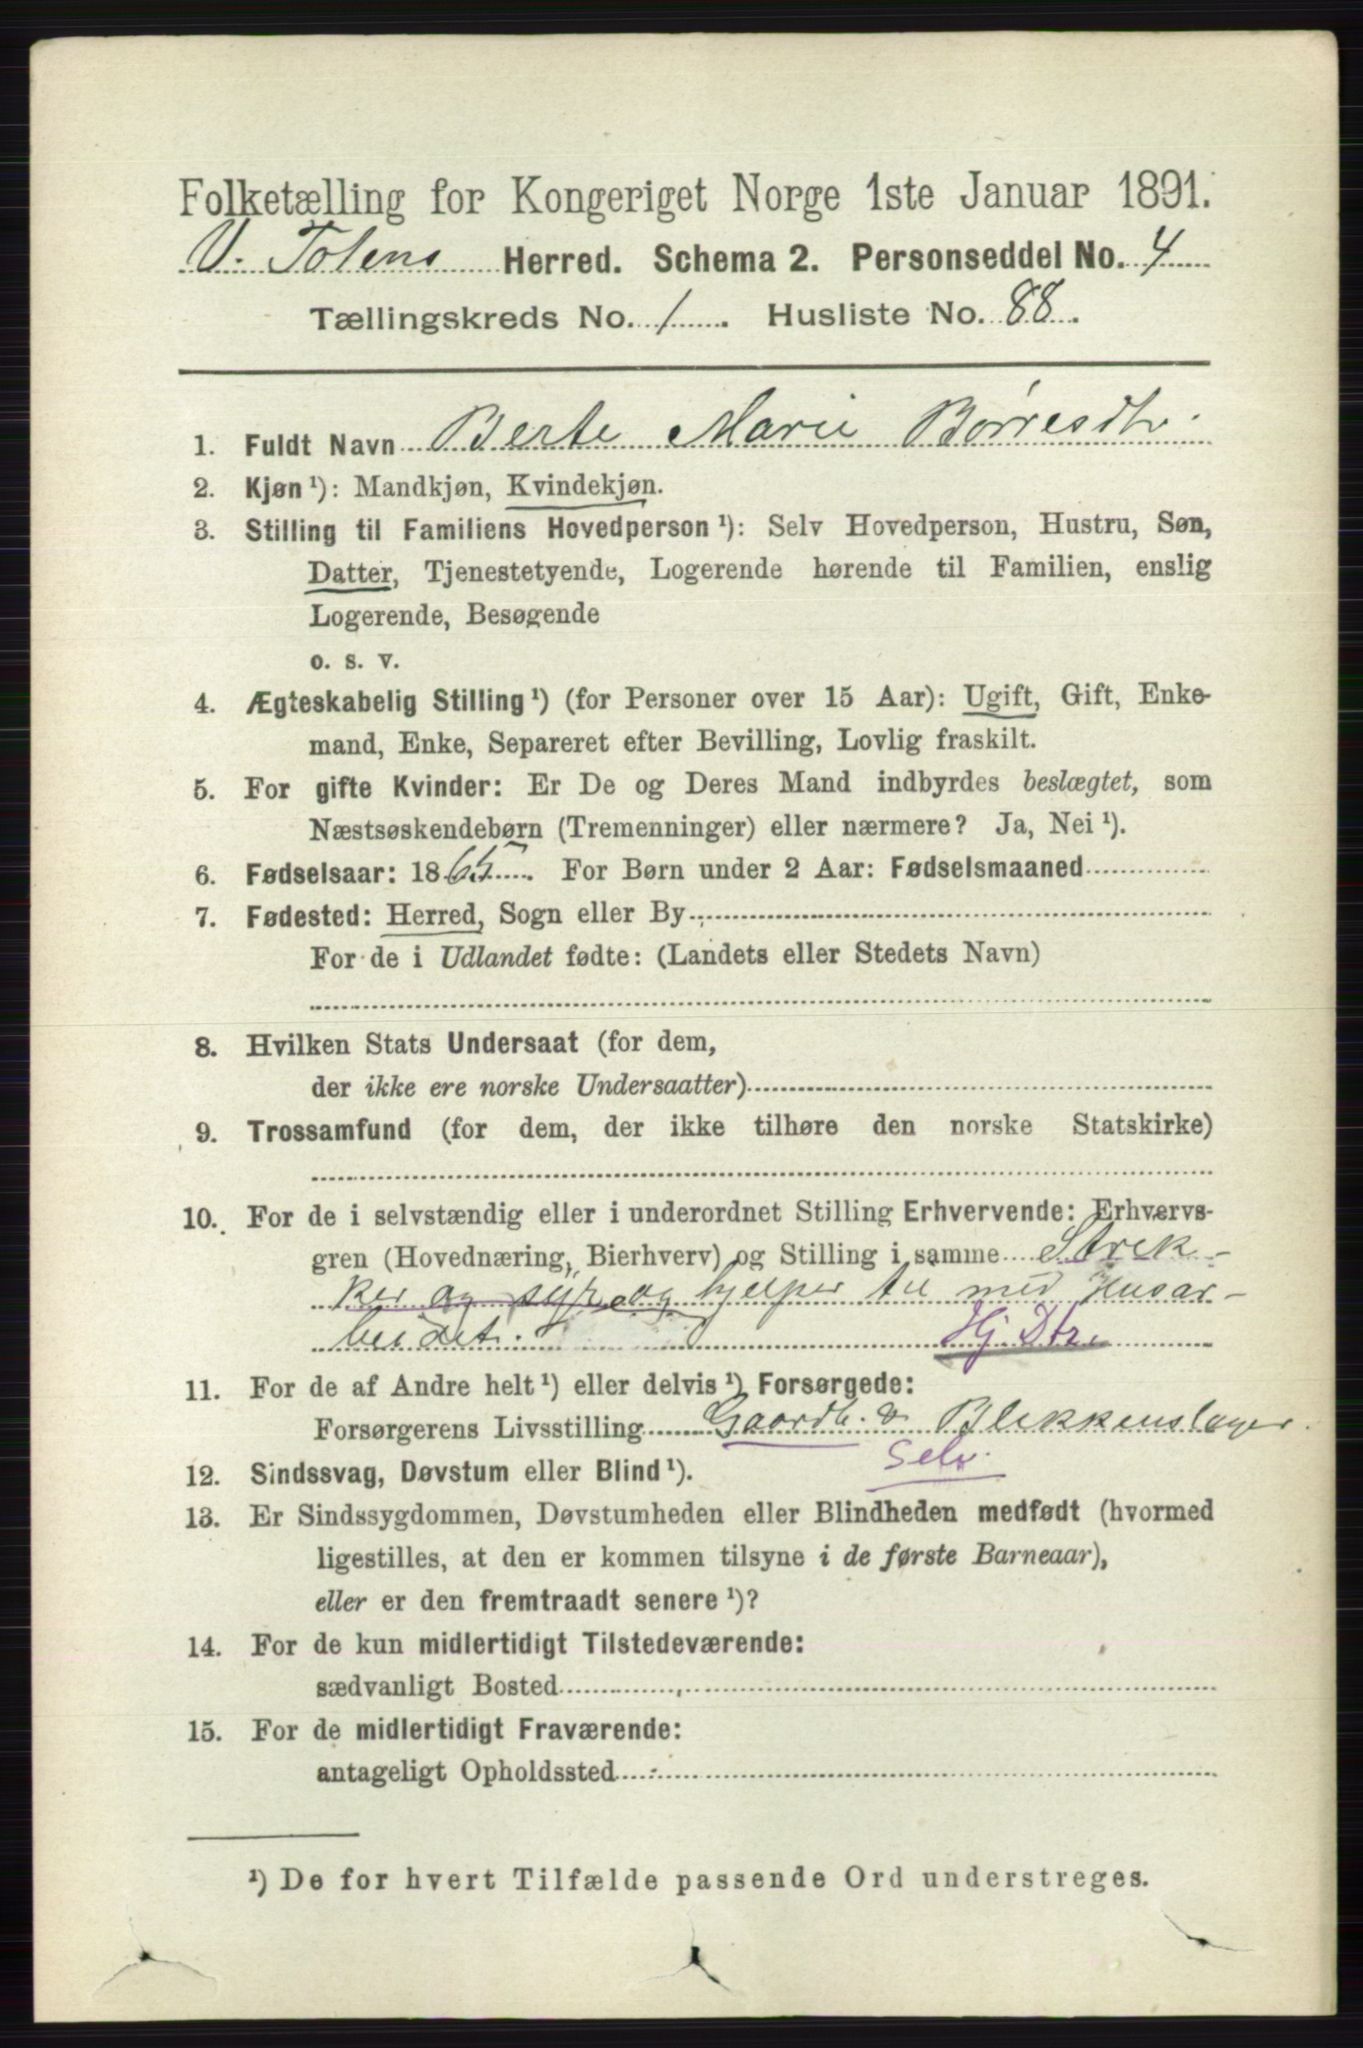 Folketælling for Kongeriget Norge 1ste Januar 1891.
V. Totens Herred. Schema 2. Personseddel No. 4
Tællingskreds No. 1. Husliste No. 88.
1. Fuldt Navn Berte Marie Børresdtr.
2. Kjøn ¹): Mandkjøn, Kvindekjøn.
3. Stilling til Familiens Hovedperson ¹): Selv Hovedperson, Hustru, Søn,
Datter, Tjenestetyende, Logerende hørende til Familien, enslig
Logerende, Besøgende
o. s. v.
4. Ægteskabelig Stilling ¹) (for Personer over 15 Aar): Ugift, Gift, Enke-
mand, Enke, Separeret efter Bevilling, Lovlig fraskilt.
5. For gifte Kvinder: Er De og Deres Mand indbyrdes beslægtet, som
Næstsøskendebørn (Tremenninger) eller nærmere? Ja, Nei ¹).
6. Fødselsaar: 1865. For Børn under 2 Aar: Fødselsmaaned
7. Fødested: Herred, Sogn eller By
For de i Udlandet fødte: (Landets eller Stedets Navn)
8. Hvilken Stats Undersaat (for dem,
der ikke ere norske Undersaatter)
9. Trossamfund (for dem, der ikke tilhøre den norske Statskirke)
10. For de i selvstændig eller i underordnet Stilling Erhvervende: Erhvervs-
gren (Hovednæring, Bierhverv) og Stilling i samme Strek-
ker og syr og hjelper til med Husar-
beidet. Hj. Dtr.
11. For de af Andre helt ¹) eller delvis ¹) Forsørgede:
Forsørgerens Livsstilling Gaardb. & Blikkenslager.
Selv.
12. Sindssvag, Døvstum eller Blind ¹).
13. Er Sindssygdommen, Døvstumheden eller Blindheden medfødt (hvormed
ligestilles, at den er kommen tilsyne i de første Barneaar),
eller er den fremtraadt senere ¹)?
14. For de kun midlertidigt Tilstedeværende:
sædvanligt Bosted
15. For de midlertidigt Fraværende:
antageligt Opholdssted
¹) De for hvert Tilfælde passende Ord understreges.